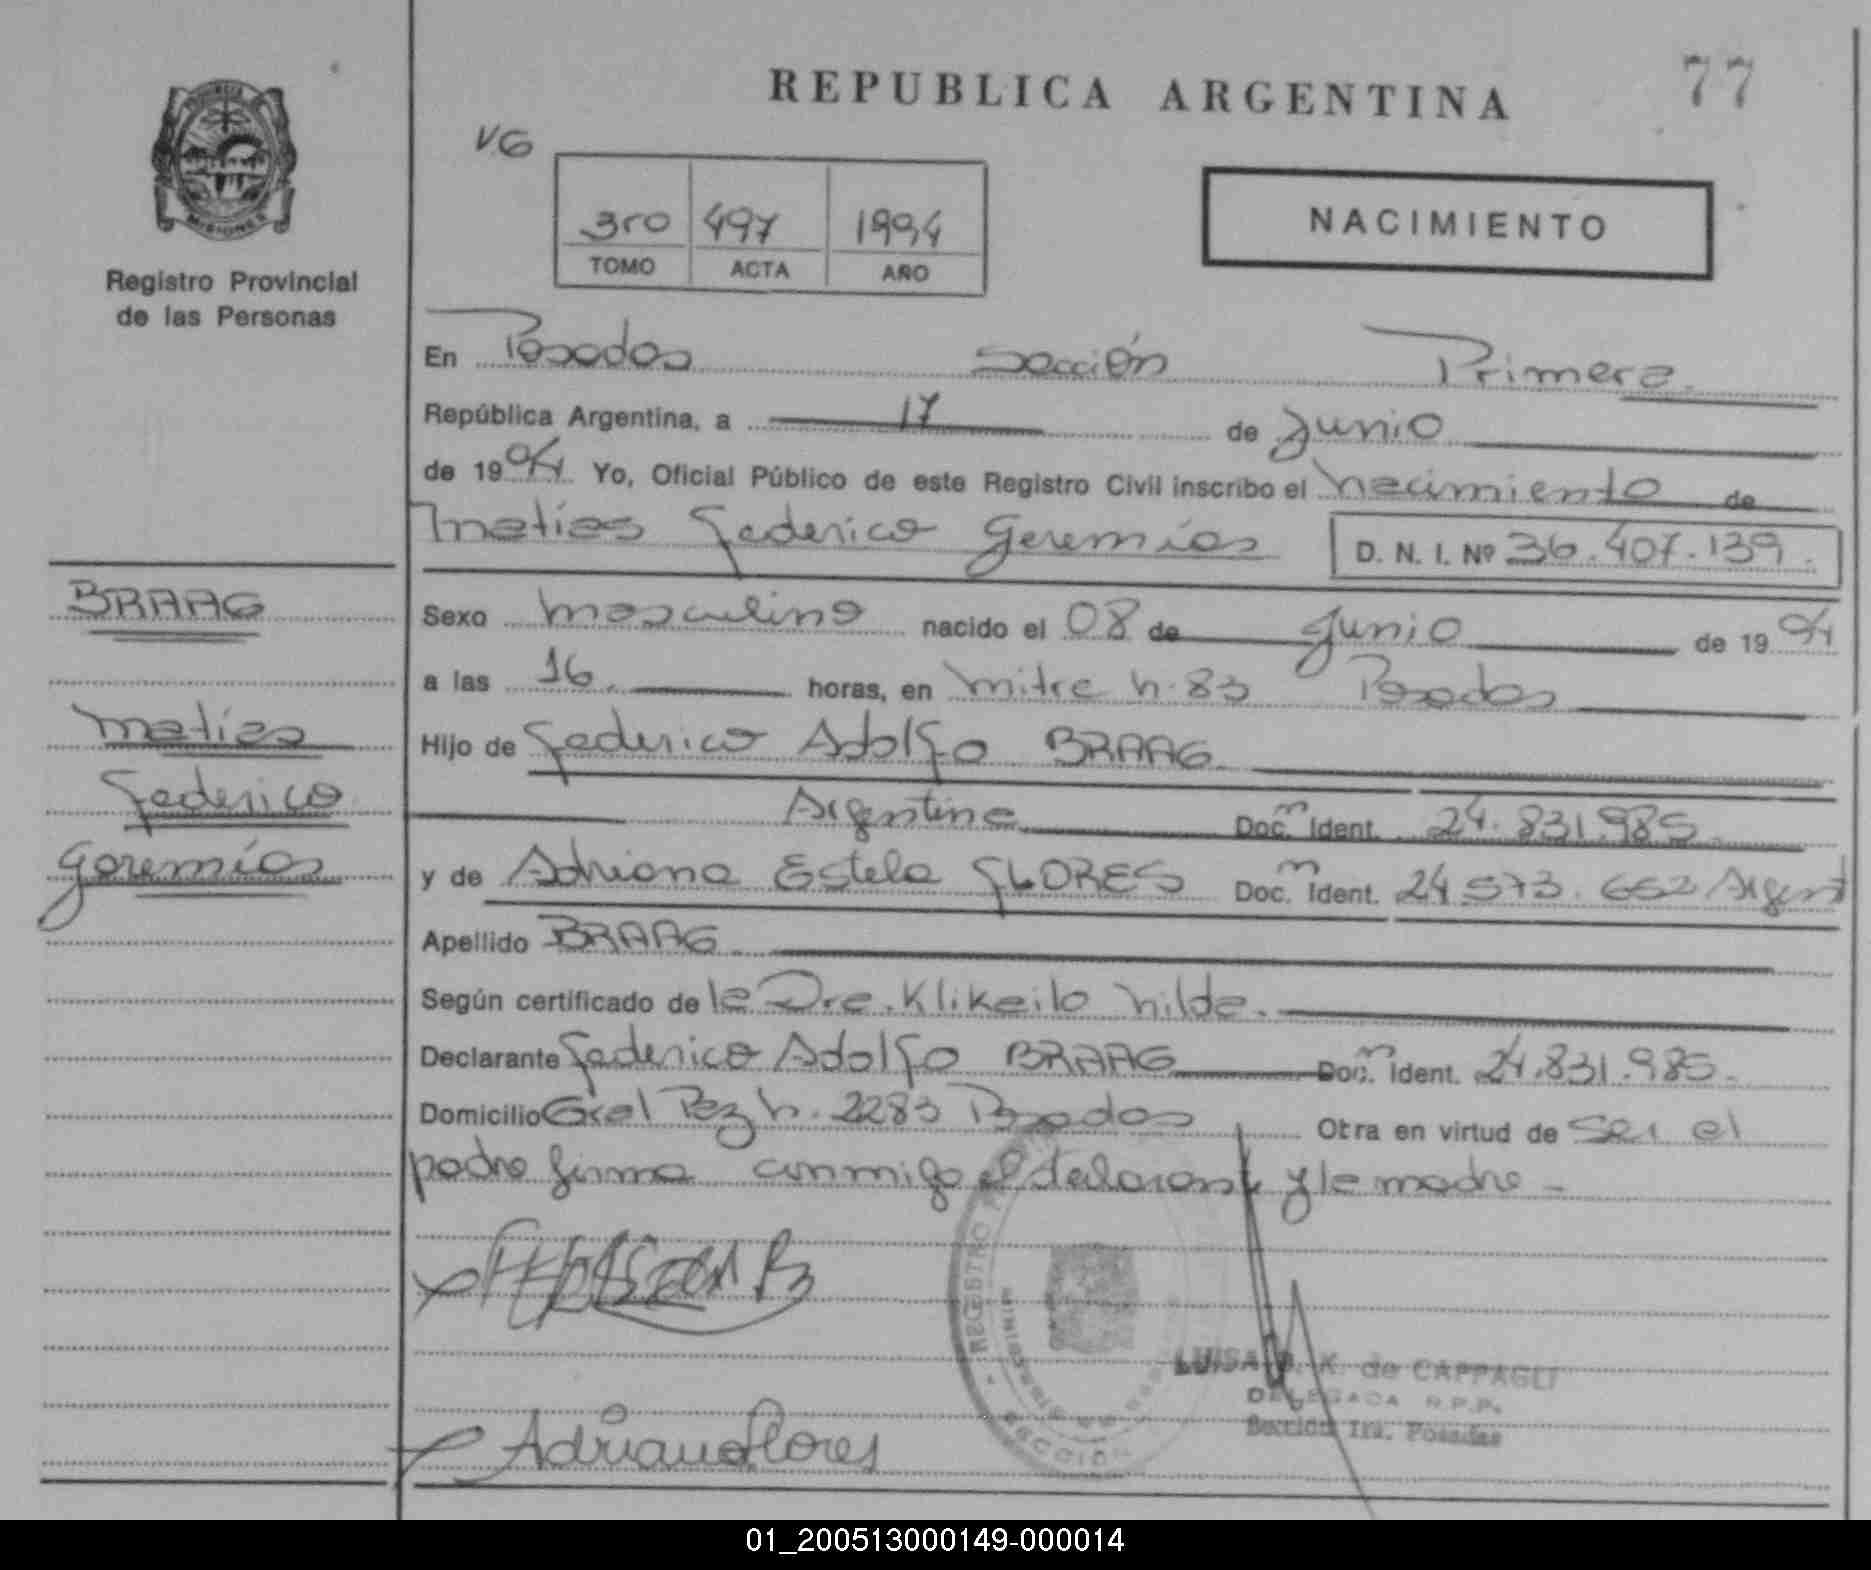 REPUBLICA ARGENTINA
77
PROVINCIA DE
MISIONES
Registro Provincial
de las Personas
VG
3ro 497 1994
TOMO ACTA AÑO
NACIMIENTO
En Posadas Sección Primera
República Argentina, a 17 de Junio
de 1994 Yo, Oficial Público de este Registro Civil inscribo el nacimiento de
Matías Federico Geremías D. N. I. Nº 36.407.139.
BRAAG
Sexo masculino nacido el 08 de Junio de 1994
a las 16. horas, en mitre n. 83 Posadas
Matías
Hijo de Federico Adolfo BRAAG
Federico
Argentina Doc. Ident. 24.831.985.
Geremías
y de Adriana Estela FLORES Doc. Ident. 24.573.652 Argent
Apellido BRAAG
Según certificado de la Dra. Klikailo hilda.
Declarante Federico Adolfo BRAAG Doc. Ident. 24.831.985.
Domicilio Gral Paz n. 2283 Posadas Otra en virtud de ser el
padre firma conmigo el declarant y la madre -
REGISTRO
SECCION
LUISA K. de CAPPAGLI
DELEGADA R.P.P.
Sección 1ra. Posadas
Adriana Flores
01_200513000149-000014